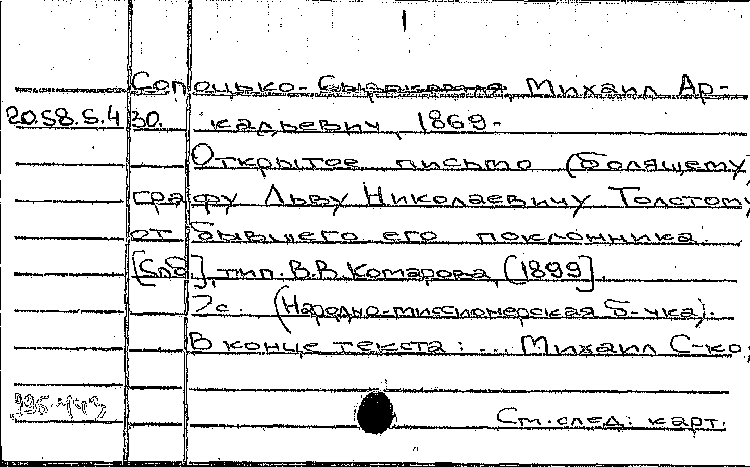 Сопоцько-Сырокомля, Михаил Ар-
20.58.5.430. кадьевич, 1869-
Открытое письмо (болящему)
графу Льву Николаевичу Толстому
от бывшего его поклонника.
[Спб.], тип. В.В. Комарова, (1899].
7с. (Народно-миссионерская б-чка).
В конце текста: ... Михаил С-ко;
См. след. карт.